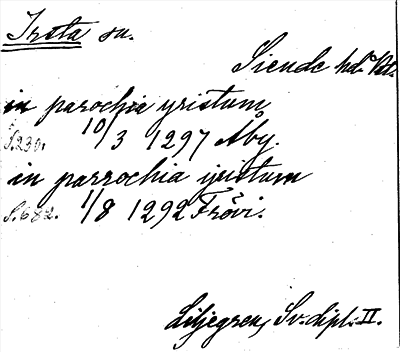 Irsta sn.
Siende hd. Vstm.
in parochia yristum
S. 230. 10/3 1297 Åby.
in parrochia ijristum
S. 682. 1/8 1292 Frövi.
Liljegren, Sv. dipl. II.